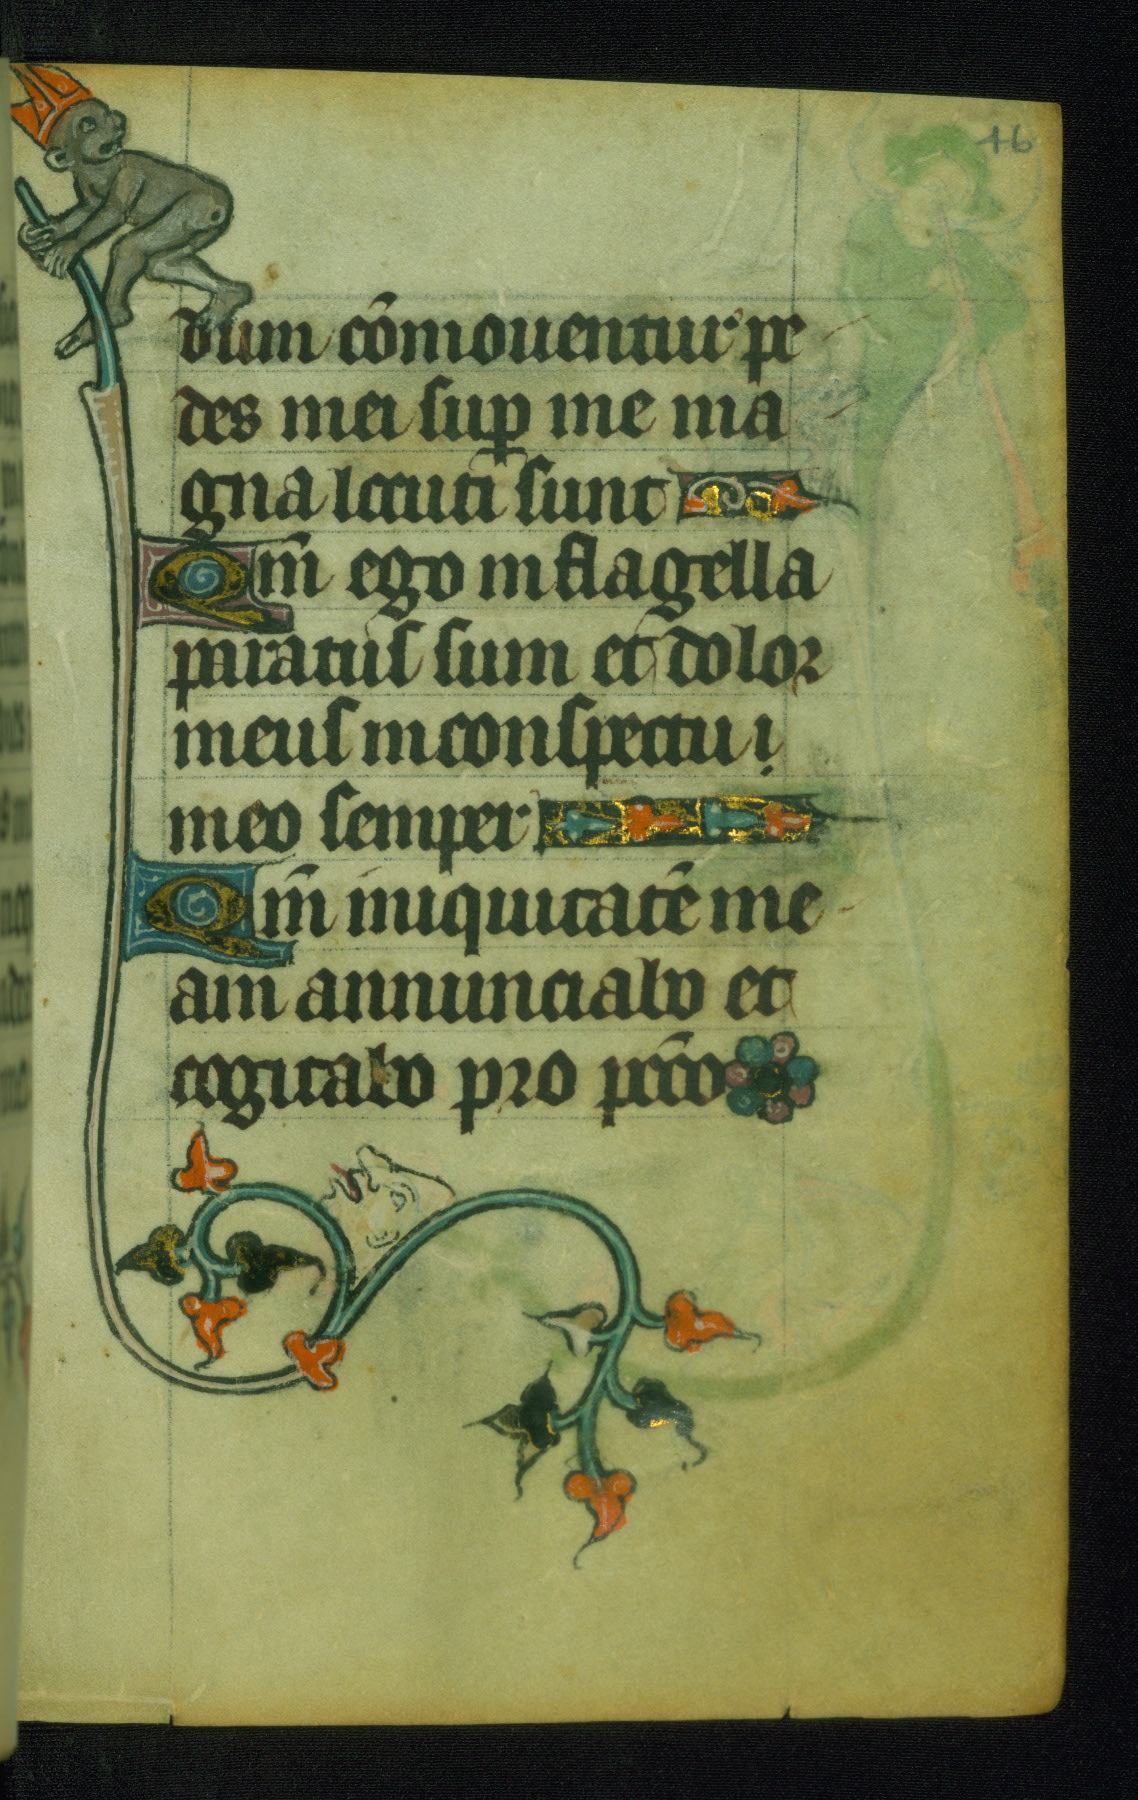 46
dum cōmouentur pe
des mei sup̱ me ma
gna locuti sunt
Qm̄ ego in flagella
paratus sum et dolor
meus in conspectu
meo semper
Qm̄ iniquitatē me
am annunciabo et
cogitabo pro pcc̄o